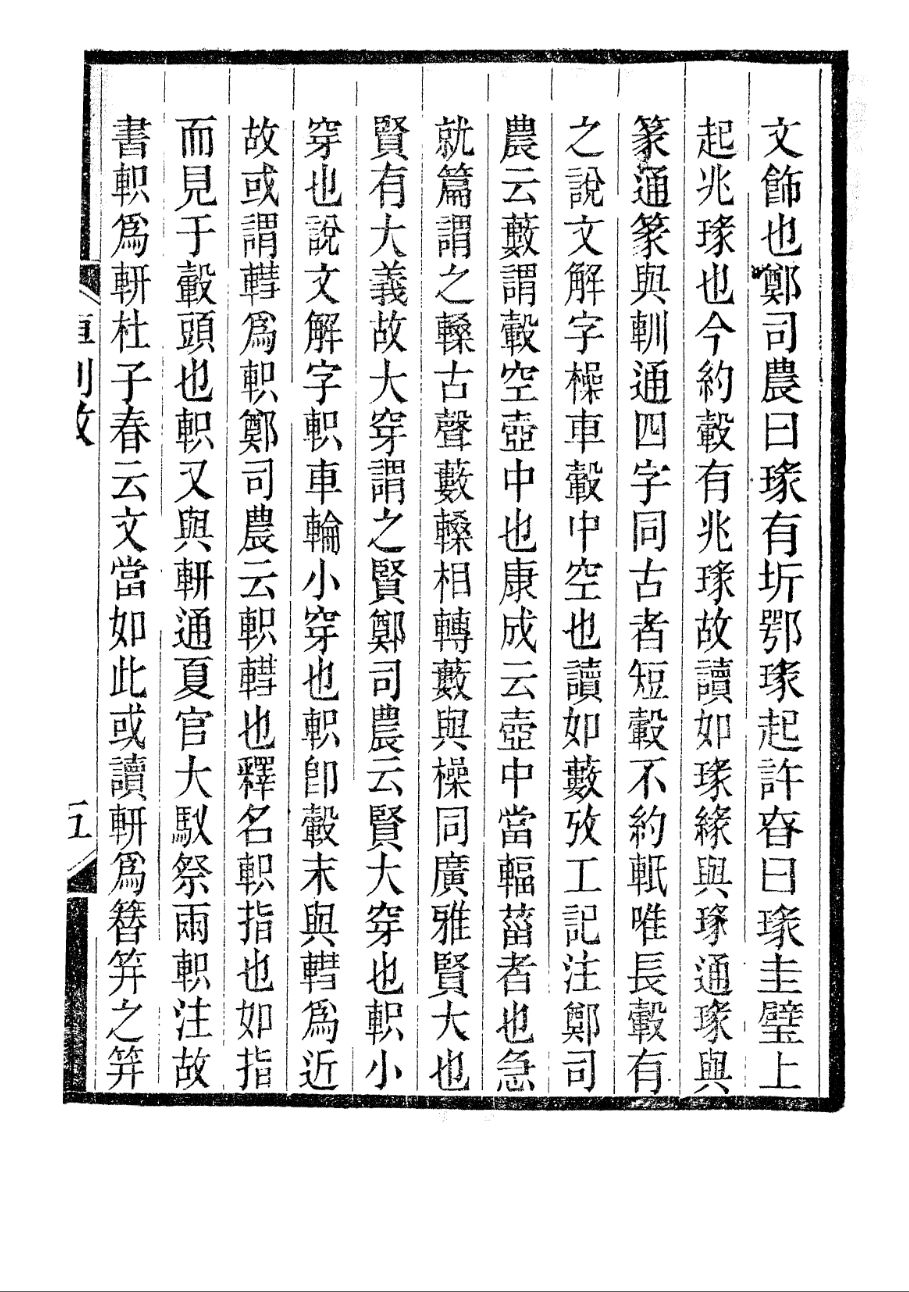 文飾也鄭司農曰瑑有圻鄂瑑起許容曰瑑圭璧上
起兆瑑也今約轂有兆瑑故讀如瑑緣與瑑通瑑與
篆通篆與軐通四字同古者短轂不約軝唯長轂有
之說文解字橾車轂中空也讀如藪攷工記注鄭司
農云藪謂轂空壺中也康成云壺中當輻菑者也急
就篇謂之轑古聲藪轑相轉藪與橾同廣雅賢大也
賢有大義故大穿謂之賢鄭司農云賢大穿也軹小
穿也說文解字軹車輪小穿也軹卽轂末與轊爲近
故或謂轊爲軹鄭司農云軹轊也釋名軹指也如指
而見于轂頭也軹又與軿通夏官大馭祭兩軹注故
書軹爲軿杜子春云文當如此或讀軿爲簪笄之笄
車制攷
五